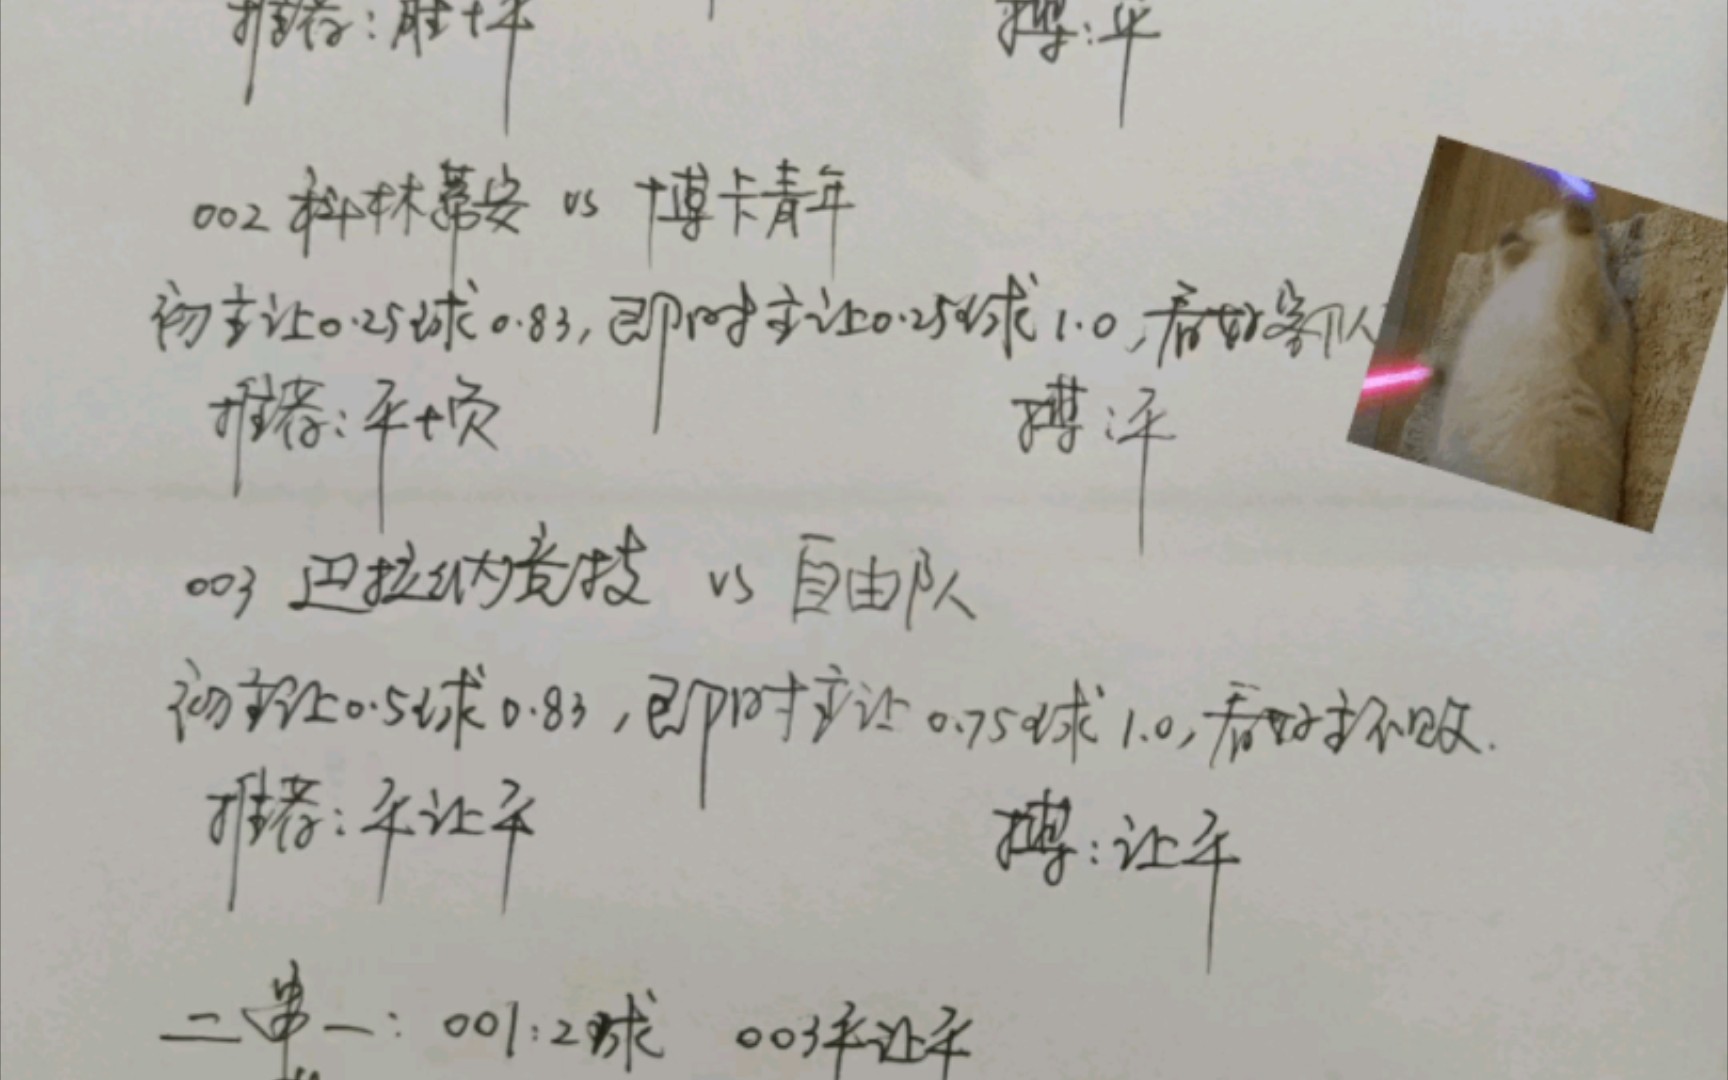 推荐：胜+平 搏：平
002 科林蒂安 vs 博卡青年
初主让0.25球0.83，即时主让0.25球1.0，看好客队
推荐：平+负 搏：平
003 巴拉纳竞技 vs 自由队
初主让0.5球0.83，即时主让0.75球1.0，看好主不败.
推荐：平让平 搏：让平
二串一：001:2球 003平让平